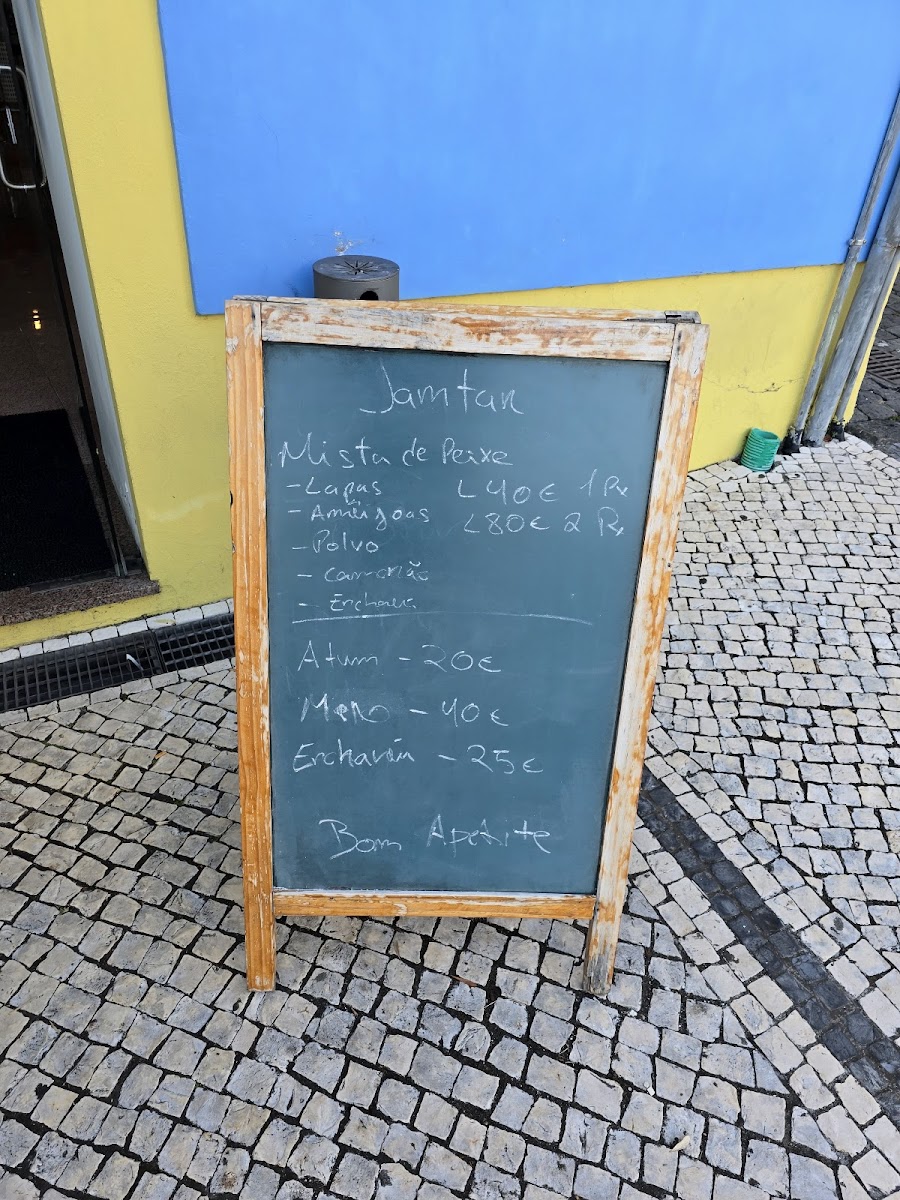 Jamtar
Mista de Peixe
- Lapas L 40€ 1 Px
- Amêijoas L 80€ 2 Px
- Polvo
- Camarão
- Encharéu
Atum - 20€
Mero - 40€
Encharéu - 25€
Bom Apetite